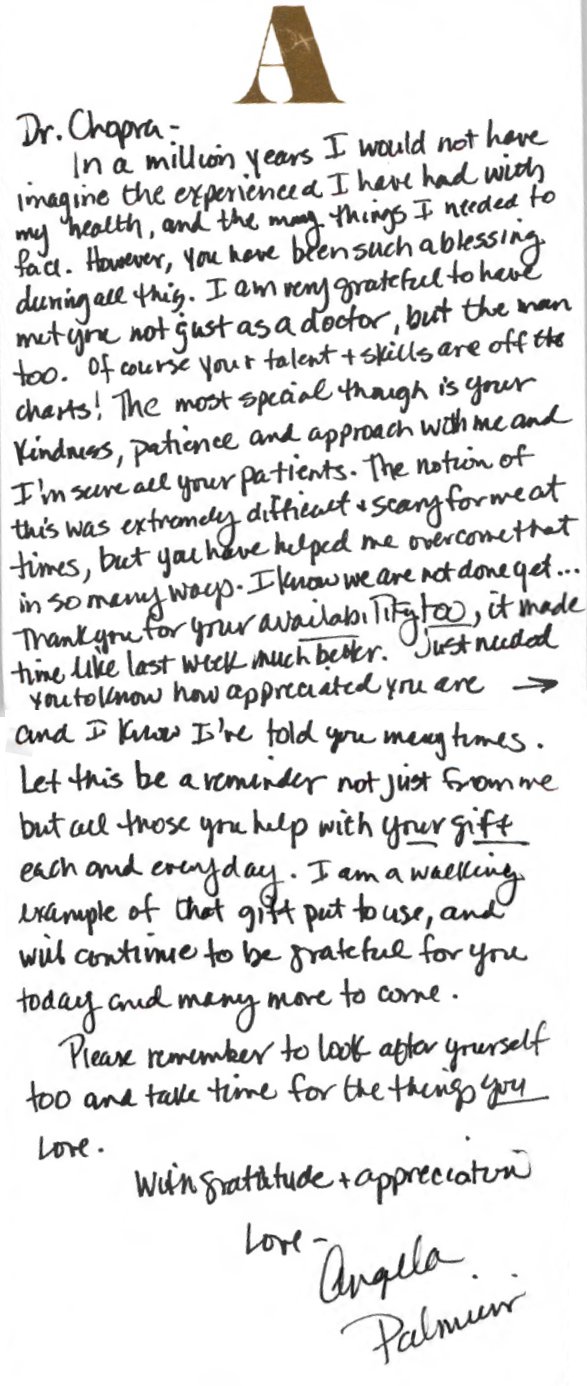 A
Dr. Chopra -
In a million years I would not have
imagine the experienced I have had with
my health, and the many things I needed to
face. However, you have been such a blessing
during all this. I am very grateful to have
met you not just as a doctor, but the man
too. Of course your talent + skills are off the
charts! The most special though is your
kindness, patience and approach with me and
I'm sure all your patients. The notion of
this was extremely difficult + scary for me at
times, but you have helped me overcome that
in so many ways. I know we are not done yet...
Thank you for your availability too, it made
time like last week much better. Just needed
you to know how appreciated you are →
and I know I've told you many times.
Let this be a reminder not just from me
but all those you help with your gift
each and everyday. I am a walking
example of that gift put to use, and
will continue to be grateful for you
today and many more to come.
Please remember to look after yourself
too and take time for the things you
Love.
With gratitude + appreciation
Love -
Angela
Palmieri